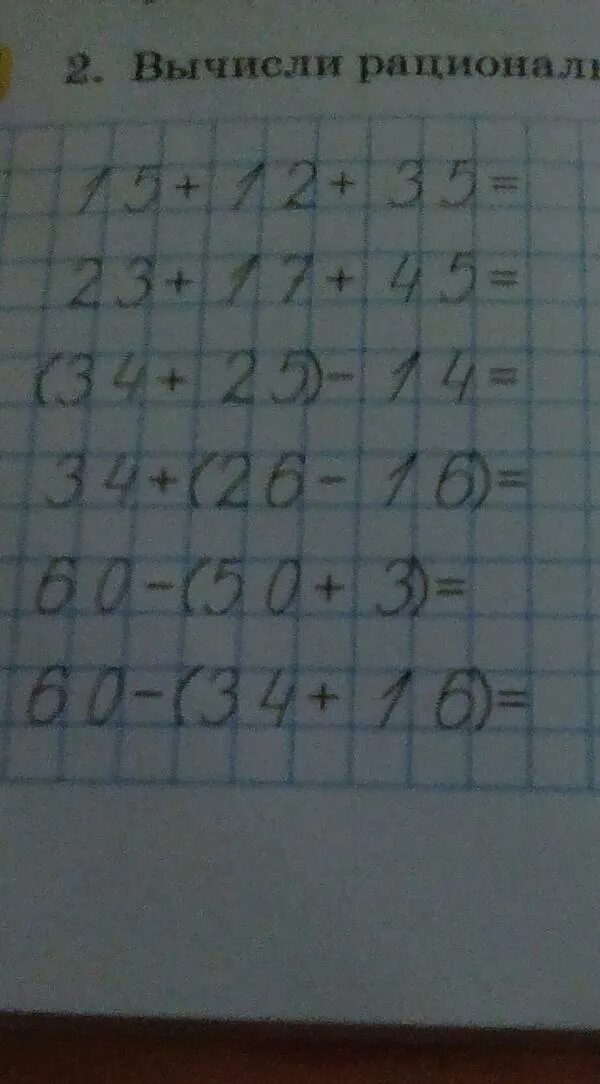 2. Вычисли рационалы
15+12+35=
23+17+45=
(34+25)-14=
34+(26-16)=
60-(50+3)=
60-(34+16)=